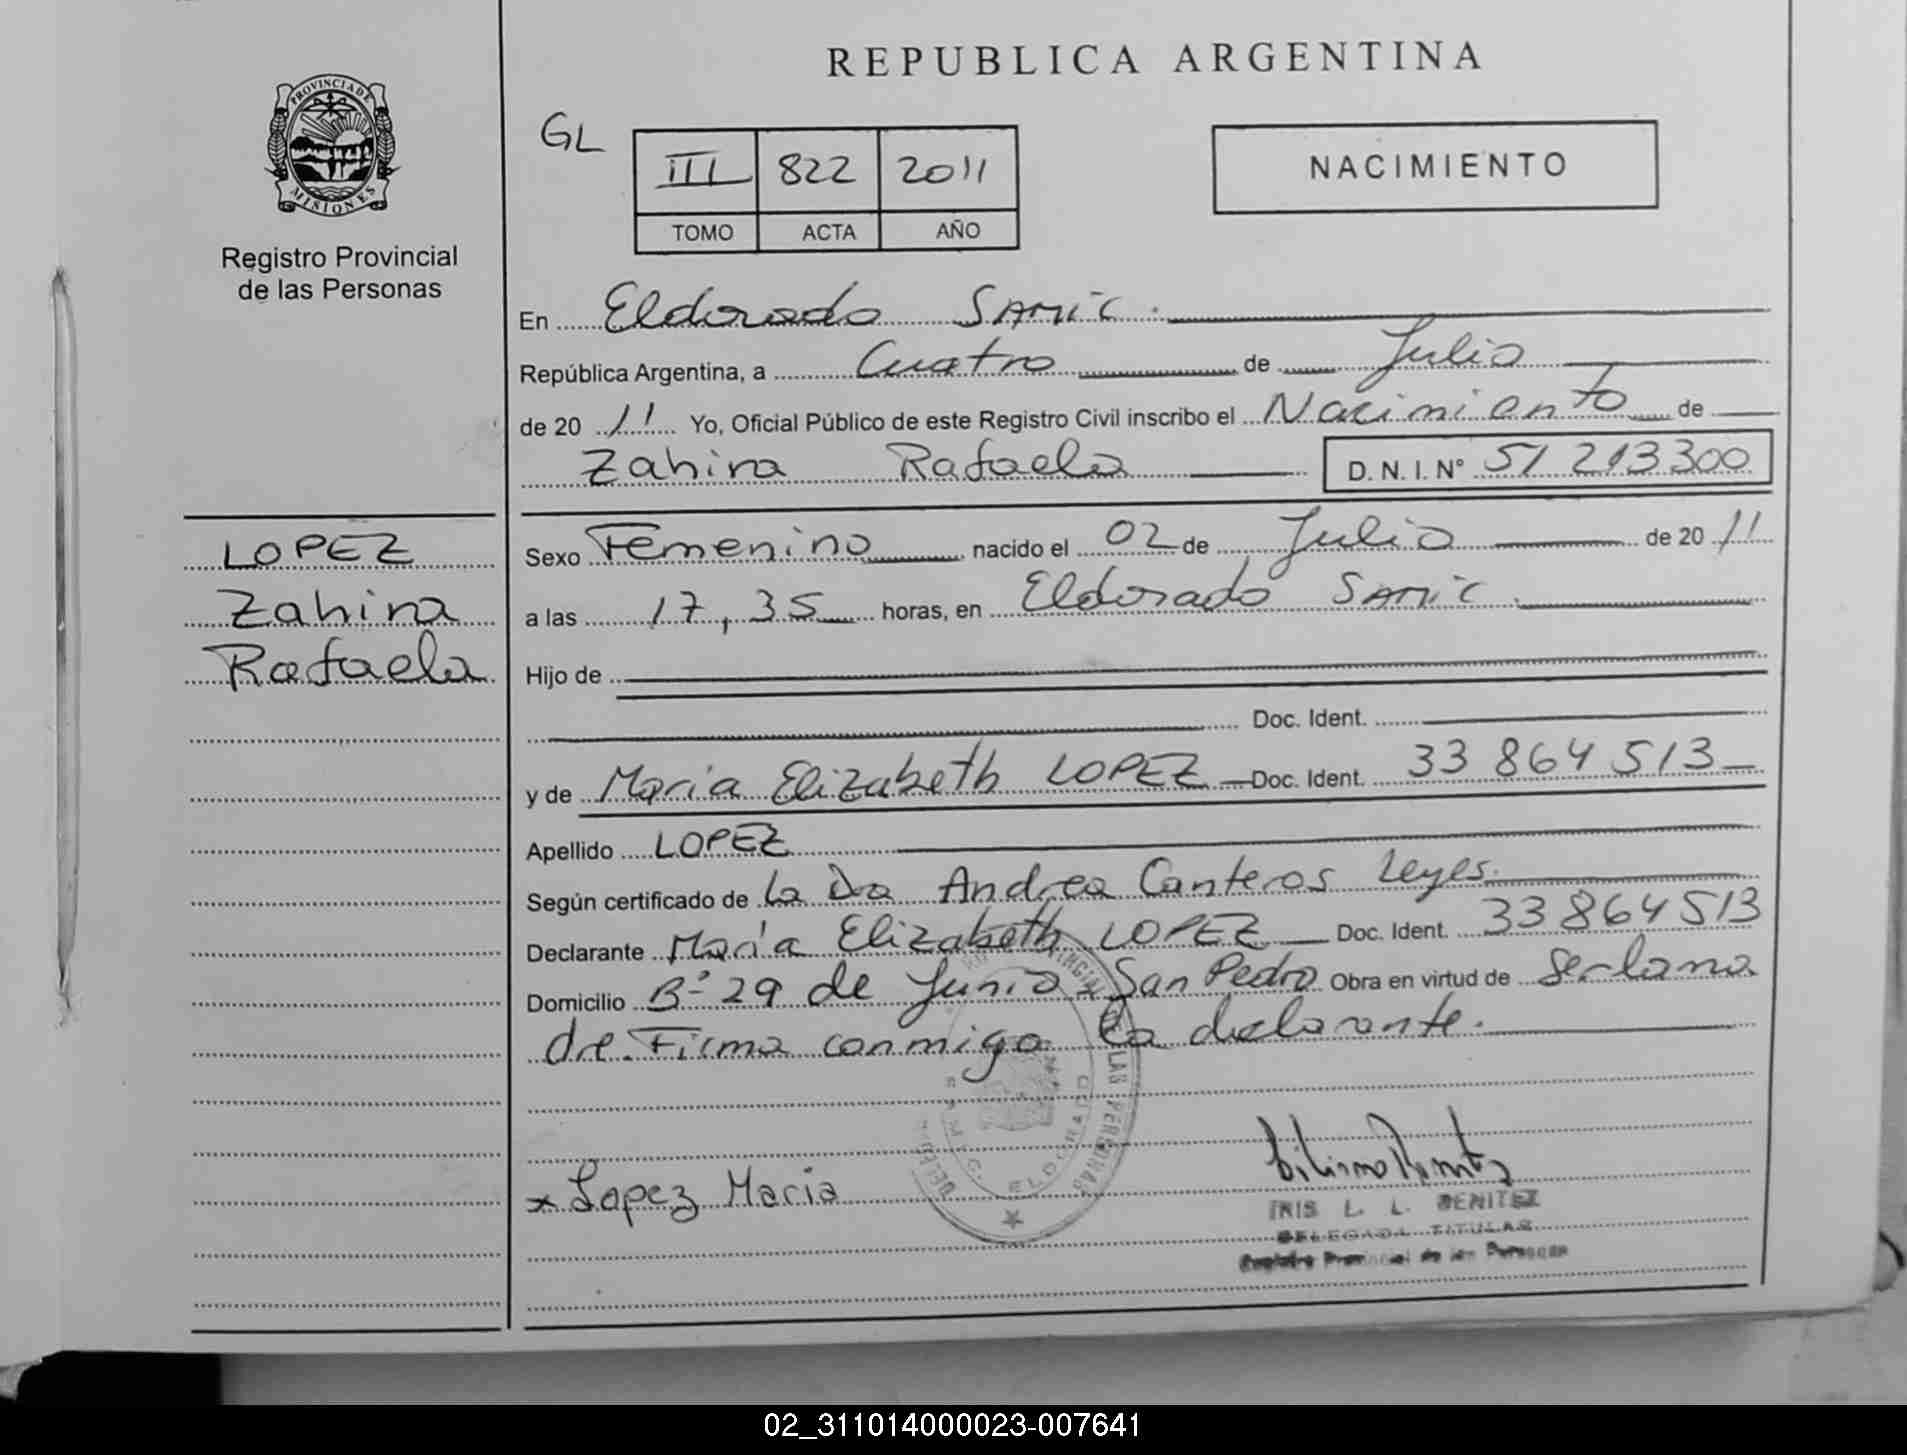 REPUBLICA ARGENTINA
PROVINCIA DE
MISIONES
Registro Provincial
de las Personas
GL
III 822 2011
TOMO ACTA AÑO
NACIMIENTO
En Eldorado SAMIC.
República Argentina, a Cuatro de Julio
de 20 11 Yo, Oficial Público de este Registro Civil inscribo el Nacimiento de
Zahira Rafaela D. N. I. N° 51 213300
LOPEZ
Zahira
Rafaela
Sexo Femenino nacido el 02 de Julio de 20 11
a las 17,35 horas, en Eldorado SAMIC.
Hijo de
Doc. Ident.
y de Maria Elizabeth LOPEZ Doc. Ident. 33 864 513
Apellido LOPEZ
Según certificado de la Dra Andrea Canteros Leyes.
Declarante Maria Elizabeth LOPEZ Doc. Ident. 33 864 513
Domicilio B° 29 de Junio San Pedro Obra en virtud de Ser la ma
dre. Firma conmigo la declarante.
LAS PERSONAS
ELDORADO
x Lopez Maria
IRIS L. L. BENITEZ
DELEGADA TITULAR
Registro Provincial de las Personas
02_311014000023-007641